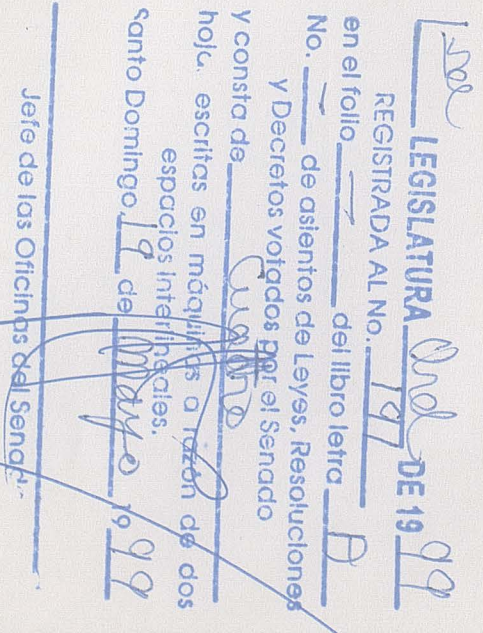 1ra LEGISLATURA Ord DE 19 99
REGISTRADA AL No. 197
en el folio — del libro letra B
No. — de asientos de Leyes, Resoluciones
y Decretos votados por el Senado
y consta de Cuatro
hoja. escritas en máquinas a razón de dos
espacios interlineales.
Santo Domingo, 19 de Mayo 19 99
Jefe de las Oficinas del Senado